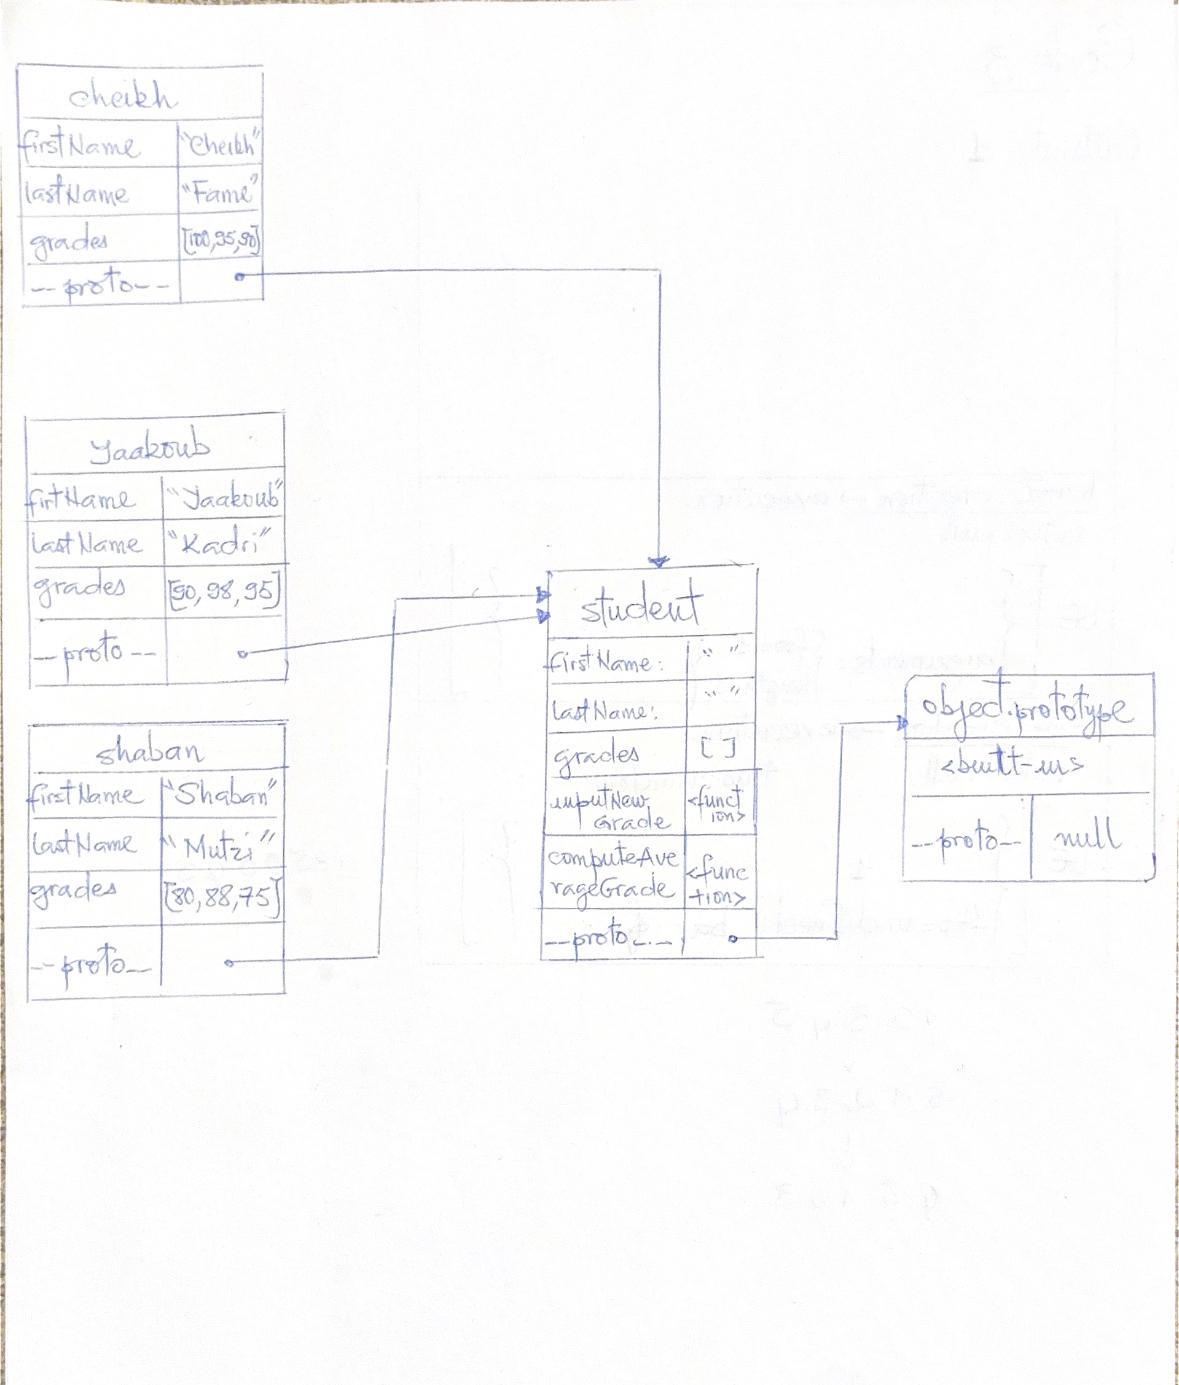 cheikh
firstName "Cheikh"
lastName "Fame"
grades [100,95,90]
--proto--
Yaakoub
firtName "Yaakoub"
lastName "Kadri"
grades [90,98,95]
--proto--
shaban
firstName "Shaban"
lastName "Mutzi"
grades [80,88,75]
--proto--
student
firstName: " "
lastName: " "
grades [ ]
inputNew <funct
Grade ion>
computeAve <func
rageGrade tion>
--proto--
object.prototype
<built-in>
--proto-- null